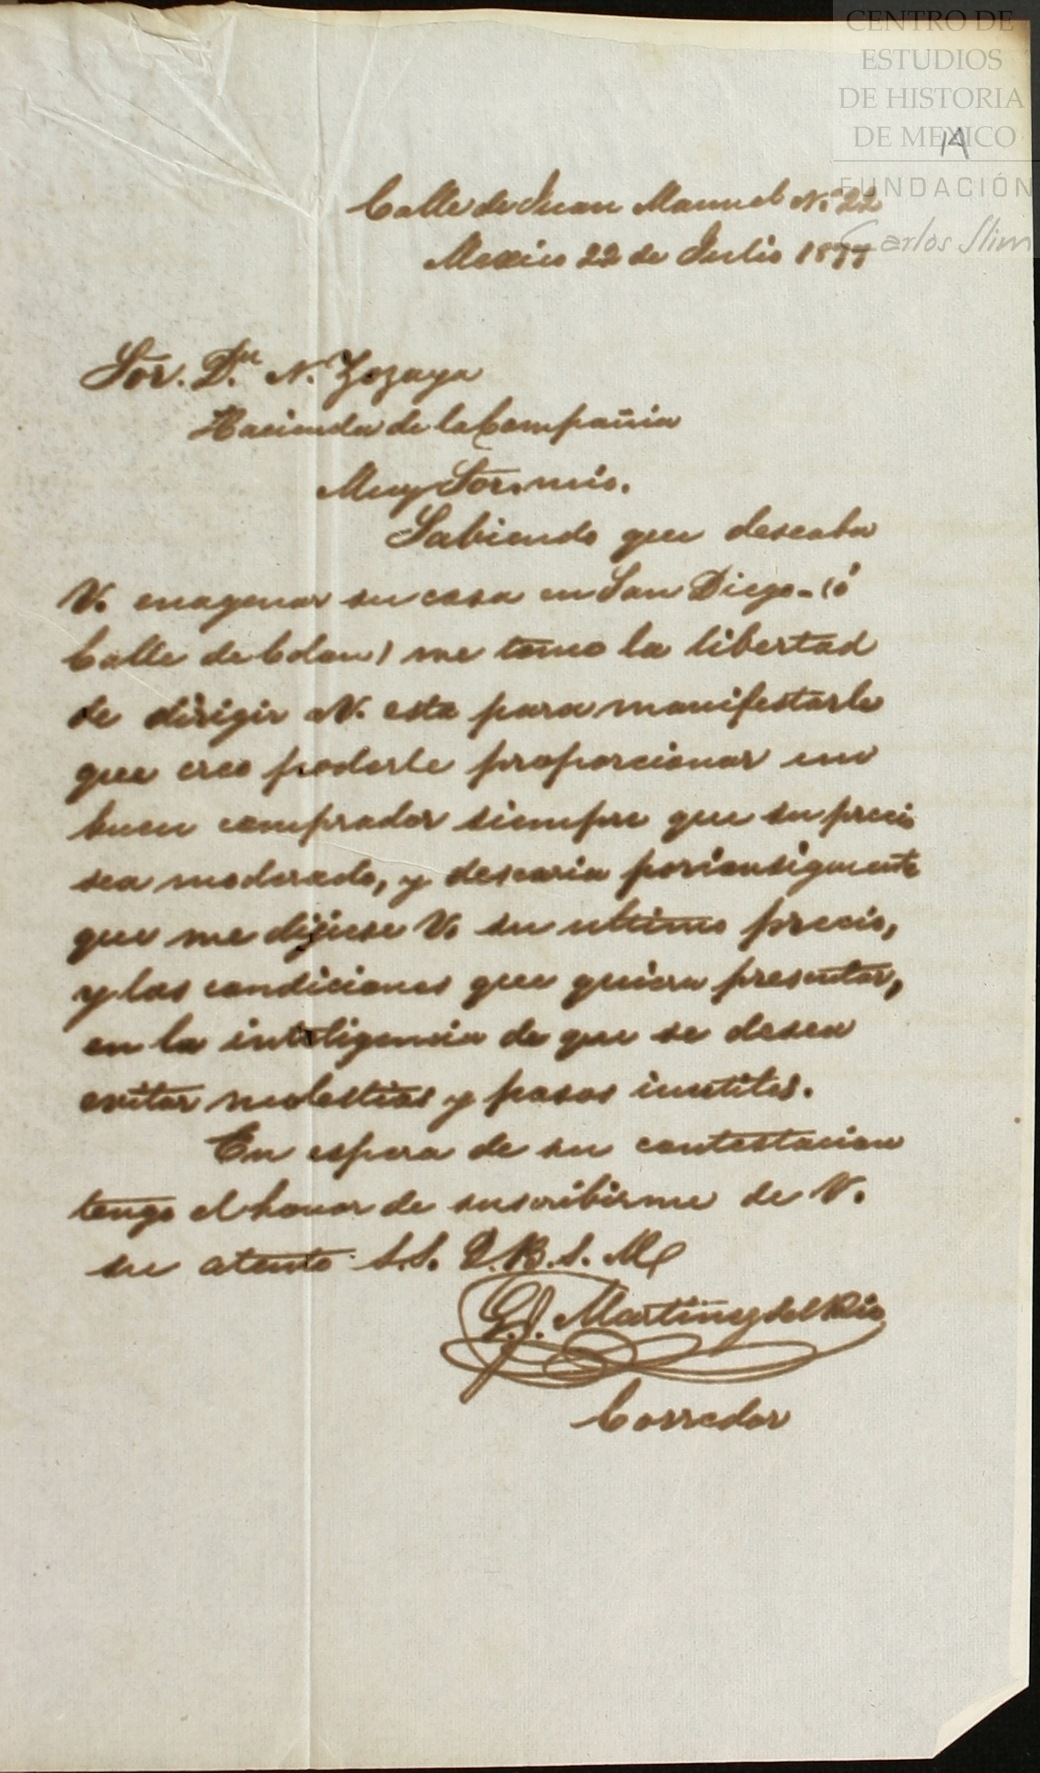 CENTRO DE
ESTUDIOS
DE HISTORIA
DE MEXICO
FUNDACIÓN
Carlos Slim
Calle de Juan Manuel N.º 22
Mexico 22 de Julio 1877
Sor. Dn. N. Zozaya
Hacienda de la Compañia
Muy Sor. mio.
Sabiendo que deseaba
V. enagenar su casa en San Diego - (ó
Calle de Colon) me tomo la libertad
de dirigir V. esta para manifestarle
que creo poderle proporcionar un
buen comprador siempre que su precio
sea moderado, y desearia por consiguiente
que me dijiese V. su ultimo precio,
y las condiciones que quiera presentar,
en la inteligencia de que se desea
evitar molestias y pasos inutiles.
En espera de su contestacion
tengo el honor de suscribirme de V.
su atento S.S. Q.B.S.M.
G.J. Martinez del Rio
Corredor